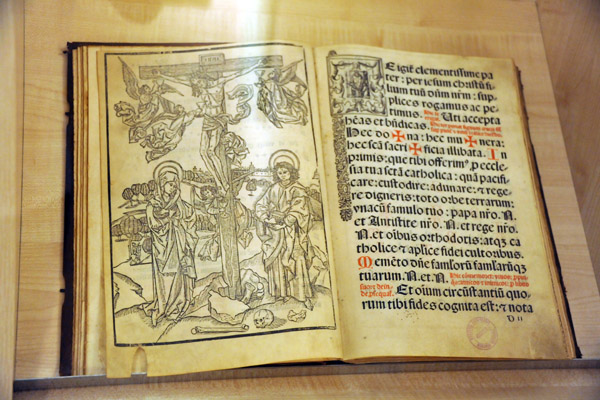 INRI
E igit͛ clementissime pa
ter: per iesum christū fi
lium tuū dñm nr̄m: sup
plices rogamus ac pe
timus. Uti accepta
hēas et bn̄dicas.
Hec do✠na: hec mu✠nera:
hec scā sacri✠ficia illibata. In
primis: que tibi offerimꝰ p eccle
sia tua sctā catholica: quā pacifi
care: custodire: adunare: ⁊ rege
re digneris: toto orbe terrarum:
vnacū famulo tuo: papa nr̄o. N.
et Antistite nr̄o. N. et rege nr̄o.
N. et oībus orthodoxis: atqꝫ ca
tholice ⁊ aplice fidei cultoribus.
Memēto dñe famlorū famlarūqꝫ
tuarum. N. et. N.
Et oīum circūstantiū quo
rum tibi fides cognita est: ⁊ nota